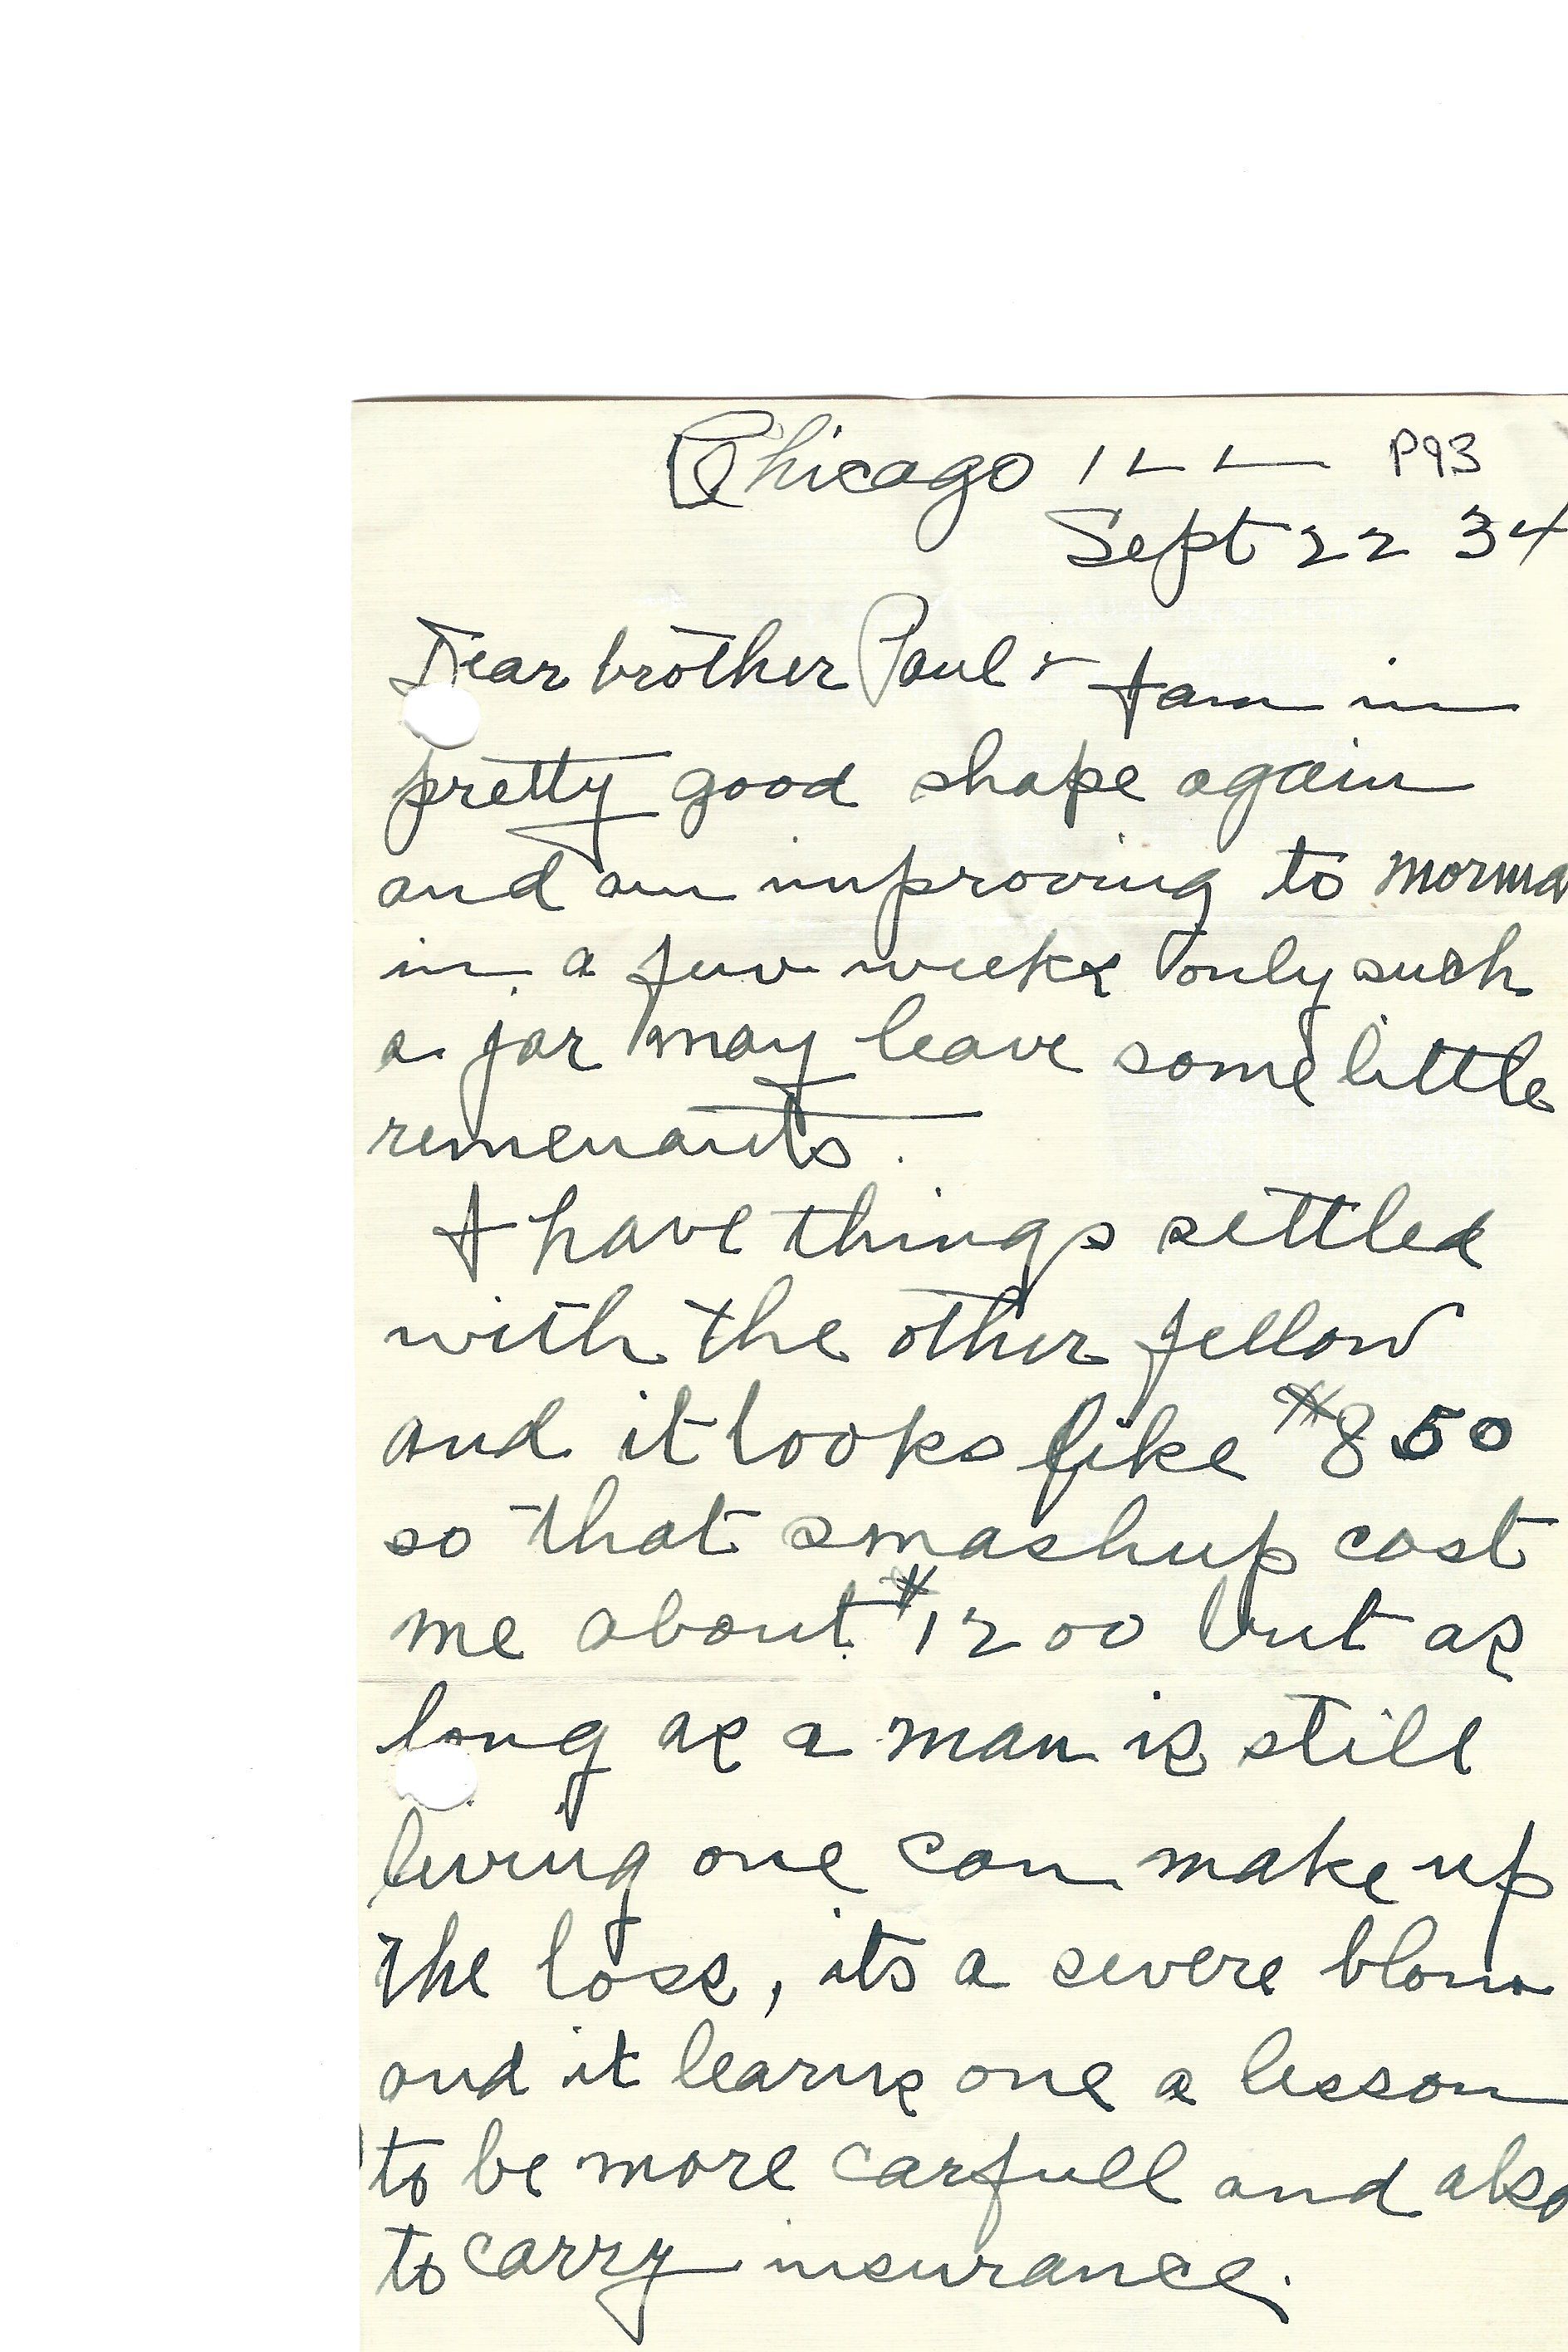 Chicago ILL P93
Sept 22 34
Dear brother Paul - I am in
pretty good shape again
and am improving to norma
in a few weeks only such
a jar may leave some little
remenants.
I have things settled
with the other fellow
and it looks like $850
so that smashup cost
me about $1200 but as
long as a man is still
living one can make up
the loss, its a severe blow
and it learns one a lesson
to be more carfull and also
to carry insurance.